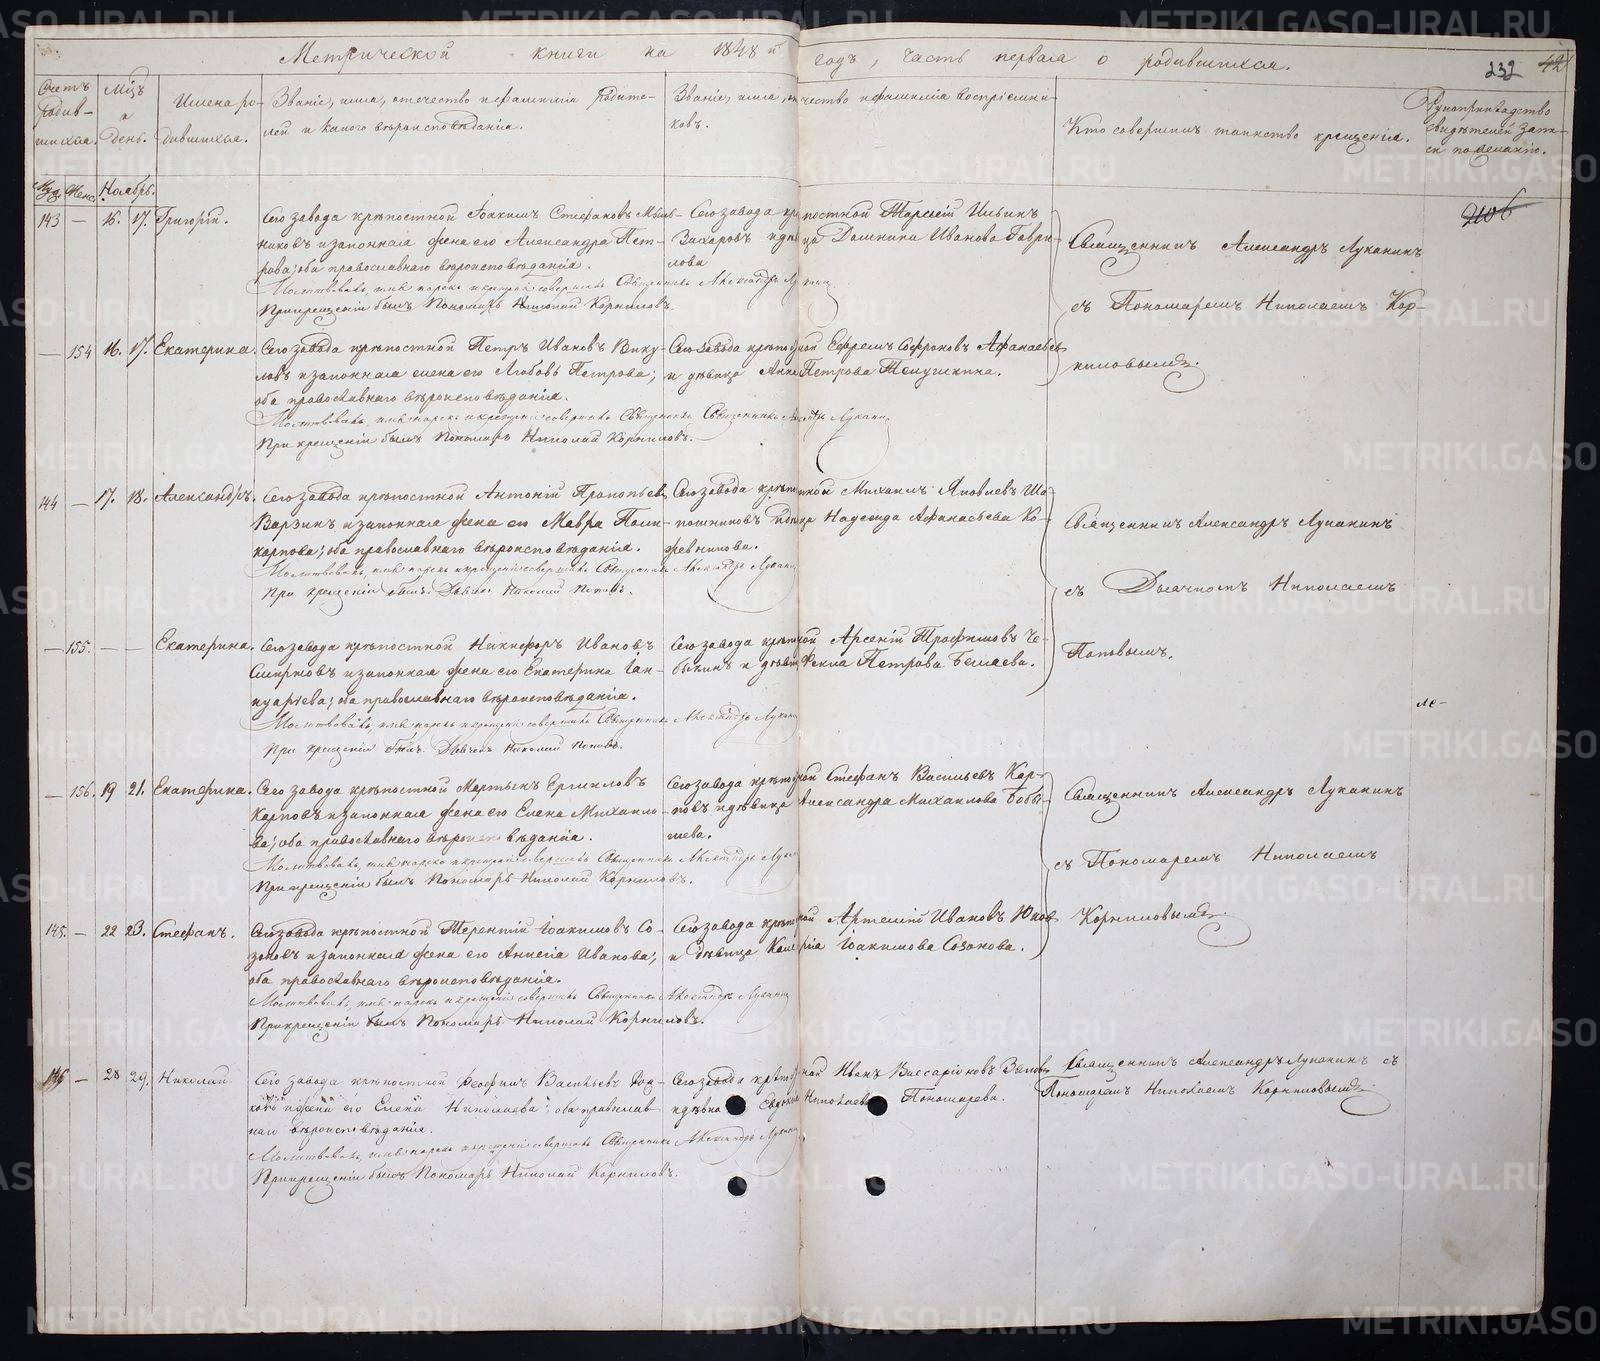 Метрической книги на 1848й годъ, часть первая о родившихся.
232
42
Счетъ родив-шихся.
Мцъ и День.
Имена ро-дившихся.
Званіе, имя, отечество и фамилія Родите-
лей и какого вѣроисповѣданія.
Званіе, имя, отчество и фамилія воспріемни-
ковъ.
Кто совершилъ таинство крещенія.
Рукоприкладство
свидѣтелей запи-
си по желанію.
Муж. Женс. Ноябрь.
2106
143 — 16. 17. Григорій.
Сего завода крѣпостной Іоакимъ Стефановъ Мыль-
никовъ и законная жена его Александра Пет-
рова; оба православнаго вѣроисповѣданія.
Молитвовалъ, имя нарекъ и крещеніе совершалъ Священникъ Александръ Луканинъ
При крещеніи былъ Пономарь Николай Корниловъ.
Сего завода крѣпостной Тарасій Ильинъ
Захаровъ и дѣвица Домника Иванова Гаври-
лова
Священникъ Александръ Луканинъ
съ Пономаремъ Николаемъ Кор-
ниловымъ.
— 154 16. 17. Екатерина.
Сего завода крѣпостной Петръ Ивановъ Вику-
ловъ и законная жена его Любовь Петрова;
оба православнаго вѣроисповѣданія.
Молитвовалъ, имя нарекъ и крещеніе совершалъ Священникъ Александръ Луканинъ
При крещеніи былъ Пономарь Николай Корниловъ.
Сего завода крѣпостной Ефремъ Софроновъ Афанасьевъ
и дѣвица Анна Петрова Телушкина.
144 — 17. 18. Александръ.
Сего завода крѣпостной Антоній Прокопьевъ
Варзинъ и законная жена его Мавра Поли-
карпова; оба православнаго вѣроисповѣданія.
Молитвовалъ, имя нарекъ и крещеніе совершалъ Священникъ Александръ Луканинъ
При крещеніи былъ Дьячекъ Николай Поповъ.
Сего завода крѣпостной Михаилъ Яковлевъ Ша-
пошниковъ и дѣвица Надежда Афанасьева Ко-
жевникова.
Священникъ Александръ Луканинъ
съ Дьячкомъ Николаемъ
Поповымъ.
— 155. — — Екатерина.
Сего завода крѣпостной Никифоръ Ивановъ
Смирновъ и законная жена его Екатерина Іан-
нуарьева; оба православнаго вѣроисповѣданія.
Молитвовалъ, имя нарекъ и крещеніе совершалъ Священникъ Александръ Луканинъ
При крещеніи былъ Дьячекъ Николай Поповъ.
Сего завода крѣпостной Арсеній Трофимовъ Че-
быкинъ и дѣвица Фекла Петрова Беляева.
— 156. 19 21. Екатерина.
Сего завода крѣпостной Мартынъ Ермиловъ
Карповъ и законная жена его Елена Михайло-
ва; оба православнаго вѣроисповѣданія.
Молитвовалъ, имя нарекъ и крещеніе совершалъ Священникъ Александръ Луканинъ
При крещеніи былъ Пономарь Николай Корниловъ.
Сего завода крѣпостной Стефанъ Васильевъ Кар-
повъ и дѣвица Александра Михайлова Бобы-
шева.
Священникъ Александръ Луканинъ
съ Пономаремъ Николаемъ
Корниловымъ.
145. — 22 23. Стефанъ.
Сего завода крѣпостной Терентій Іоакимовъ Со-
зоновъ и законная жена его Анисія Иванова;
оба православнаго вѣроисповѣданія.
Молитвовалъ, имя нарекъ и крещеніе совершалъ Священникъ Александръ Луканинъ
При крещеніи былъ Пономарь Николай Корниловъ.
Сего завода крѣпостной Артемій Ивановъ Юковъ
и дѣвица Калерія Іоакимова Созонова.
146 — 28 29. Николай.
Сего завода крѣпостной Феофилъ Васильевъ
и жена его Елена Николаева; оба православ-
наго вѣроисповѣданія.
Молитвовалъ, имя нарекъ и крещеніе совершалъ Священникъ Александръ Луканинъ
При крещеніи былъ Пономарь Николай Корниловъ.
Сего завода крѣпостной Иванъ Виссаріоновъ
и дѣвка Евдокія Николаева Пономарева.
Священникъ Александръ Луканинъ съ
Пономаремъ Николаемъ Корниловымъ.
METRIKI.GASO-URAL.RU